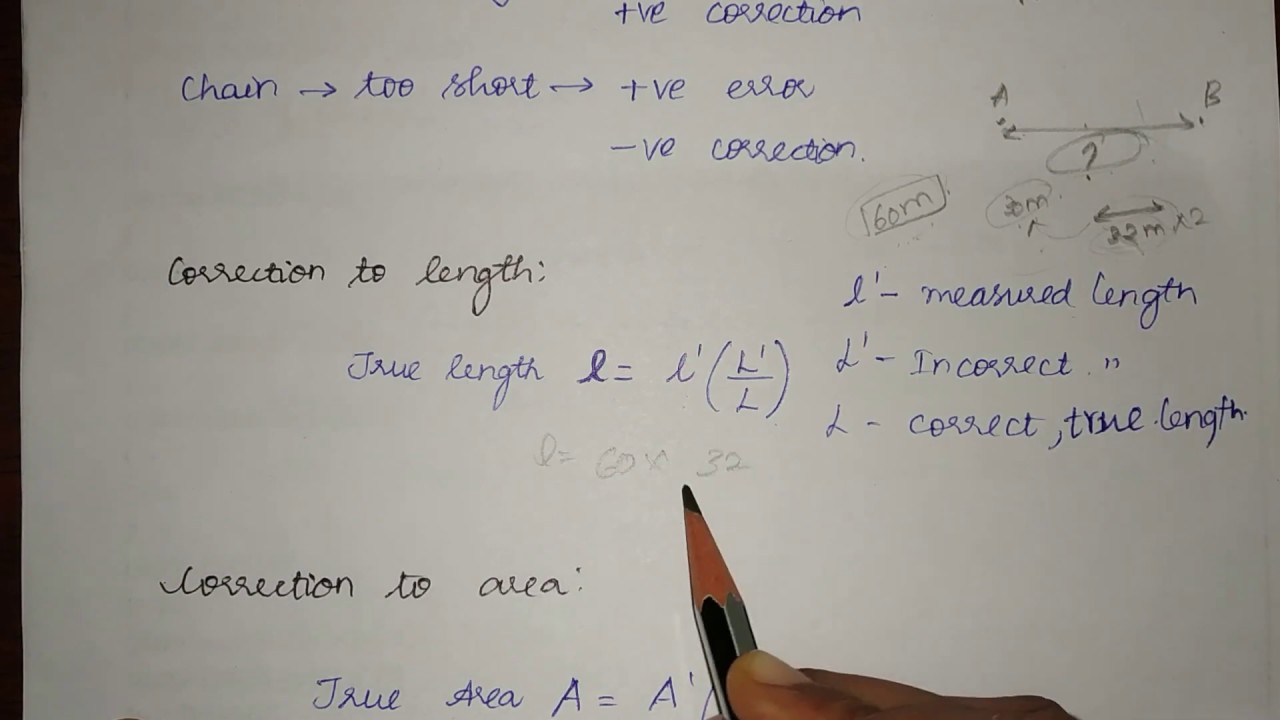 +ve correction
Chain → too short → +ve error
-ve correction.
A B
?
60m 30m 32m x2
Correction to length:
l' - measured length
True length l = l' (L'/L)
L' - Incorrect "
L - correct, true length.
l = 60 x 32
Correction to area:
True Area A = A' (